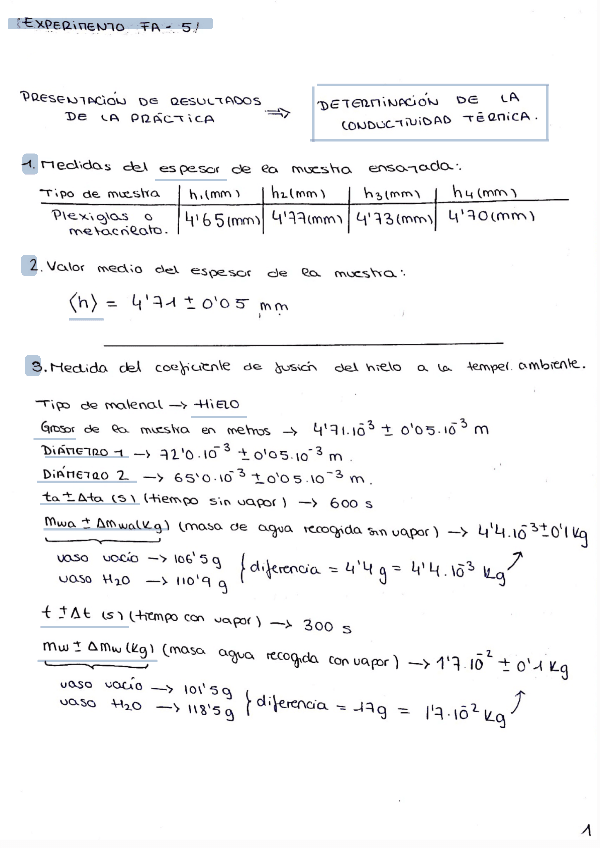 ¡EXPERIMENTO FA - 5!
PRESENTACIÓN DE RESULTADOS
DE LA PRÁCTICA
⇒
DETERMINACIÓN DE LA
CONDUCTIVIDAD TÉRMICA.
1. Medidas del espesor de la muestra ensayada:
Tipo de muestra | h₁(mm) | h₂(mm) | h₃(mm) | h₄(mm)
Plexiglas o metacrilato. | 4'65(mm) | 4'77(mm) | 4'73(mm) | 4'70(mm)
2. Valor medio del espesor de la muestra:
⟨h⟩ = 4'71 ± 0'05 mm
3. Medida del coeficiente de fusión del hielo a la temper. ambiente.
Tipo de material → HIELO
Grosor de la muestra en metros → 4'71.10⁻³ ± 0'05.10⁻³ m
DIÁMETRO 1 → 72'0.10⁻³ ± 0'05.10⁻³ m.
DIÁMETRO 2 → 65'0.10⁻³ ± 0'05.10⁻³ m.
ta ± Δta (s) (tiempo sin vapor) → 600 s
mwa ± Δmwa(Kg) (masa de agua recogida sin vapor) → 4'4.10⁻³ ± 0'1 Kg
vaso vacío → 106'5 g
vaso H2O → 110'9 g
} diferencia = 4'4 g = 4'4.10⁻³ Kg
t ± Δt (s) (tiempo con vapor) → 300 s
mw ± Δmw (Kg) (masa agua recogida con vapor) → 1'7.10⁻² ± 0'1 Kg
vaso vacío → 101'5 g
vaso H2O → 118'5 g
} diferencia = 17g = 1'7.10⁻² Kg
1